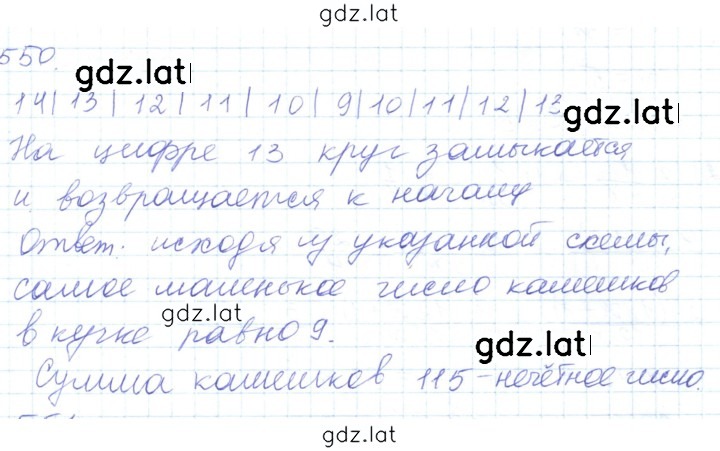 gdz.lat
550.
gdz.lat
14| 13| 12| 11| 10| 9|10|11|12|13
gdz.lat
На цифре 13 круг замыкается
и возвращается к началу
Ответ. исходя из указанной схемы,
самое маленькое число камешков
gdz.lat
в кучке равно 9.
gdz.lat
Сумма камешков 115 - нечётное число.
gdz.lat